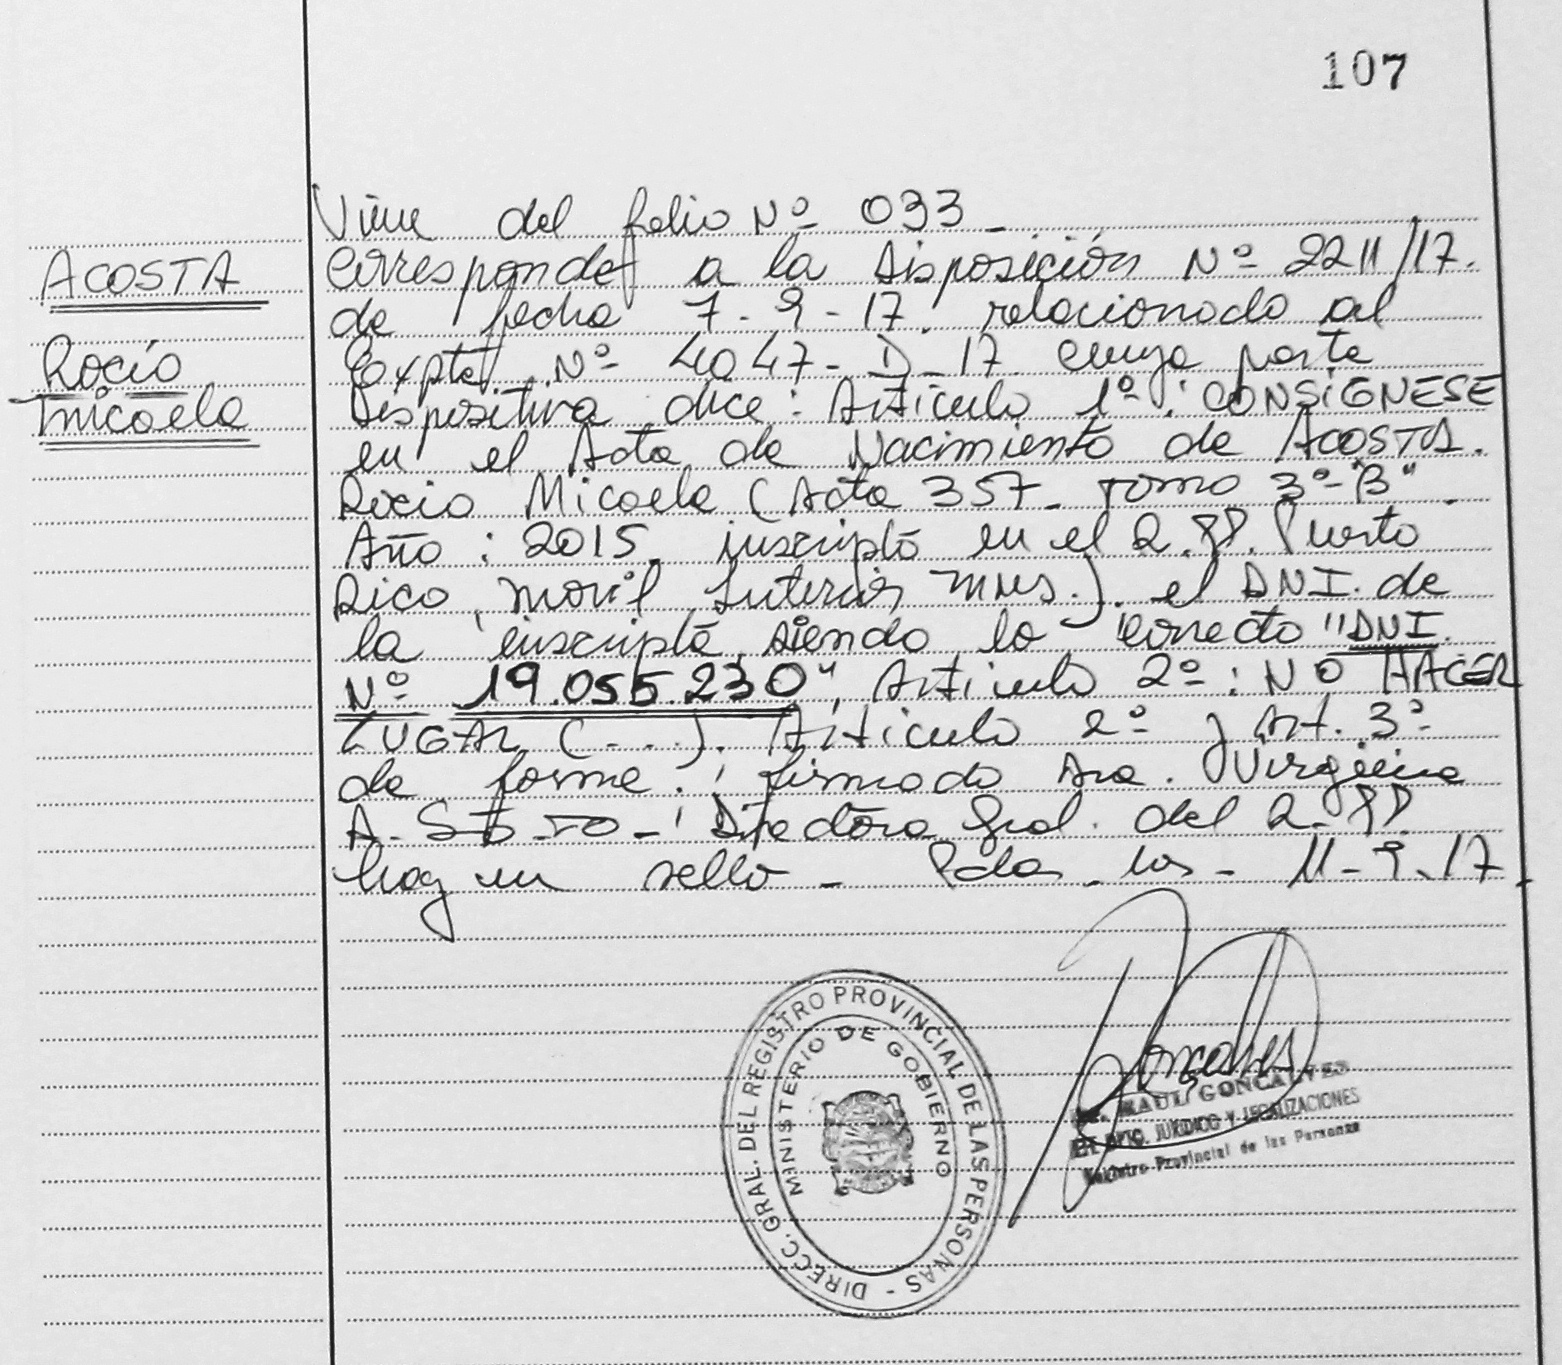 107
Viene del folio Nº 033 -
ACOSTA
Corresponde a la Disposición Nº 2211/17.
de fecha 7-9-17. relacionado al
Rocío
Expte. Nº 4047-D-17 cuya parte
Micaela
Dispositiva dice: Artículo 1º: CONSIGNESE
en el Acta de Nacimiento de ACOSTA.
Rocio Micaela (Acta 357 - Tomo 3º-"B".
Año: 2015. inscripta en el R.PP. Puerto
Rico, Movil Interior Mnes.). el DNI. de
la inscripta, siendo lo correcto "DNI.
Nº 19.055.230", Artículo 2º: NO HACER
LUGAR (...). Artículo 2º y Art. 3º
de forma. firmado Dra. Virginia
A. Directora Gral. del R.PP.
hay un sello - Pdas. - 11-9-17.
DIRECC. GRAL. DEL REGISTRO PROVINCIAL DE LAS PERSONAS -
MINISTERIO DE GOBIERNO
RAUL GONCALVES
DPTO. JURIDICO Y LEGALIZACIONES
Registro Provincial de las Personas